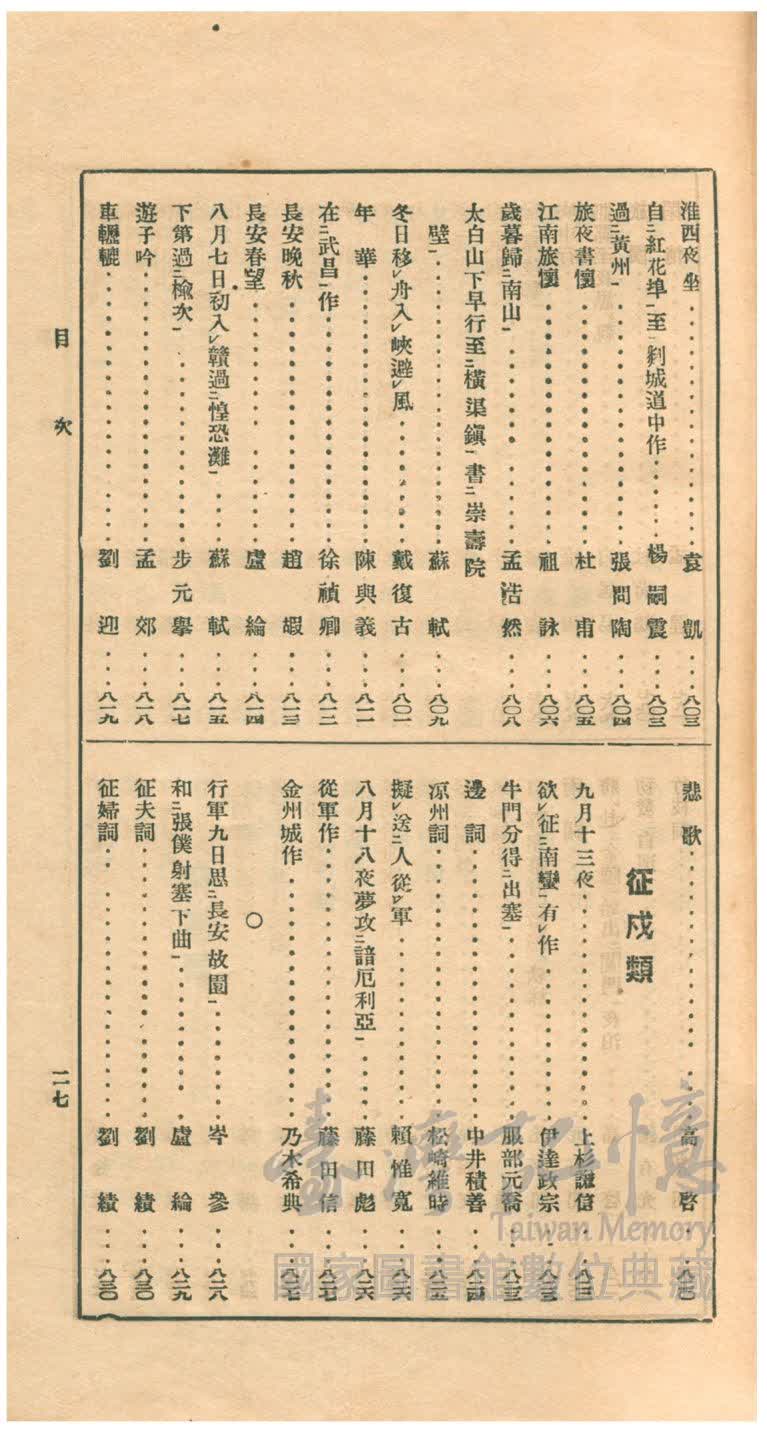 淮西夜坐……袁凱……八〇三
自二紅花埠一至二剡城道中作……楊嗣震……八〇三
過二黃州一……張問陶……八〇四
旅夜書懷……杜甫……八〇五
江南旅懷……祖詠……八〇六
歲暮歸二南山一……孟浩然……八〇八
太白山下早行至二橫渠鎭一書二崇壽院
壁一……蘇軾……八〇九
冬日移レ舟入レ峽避レ風……戴復古……八〇一
年華……陳與義……八一一
在二武昌一作……徐禎卿……八一二
長安晚秋……趙嘏……八一三
長安春望……盧綸……八一四
八月七日初入レ贛過二惶恐灘一……蘇軾……八一五
下第過二楡次一……步元擧……八一七
遊子吟……孟郊……八一八
車轣轆……劉迎……八一九
悲歌……高啓……八二〇
征戍類
九月十三夜……上杉謙信……八二三
欲レ征二南蠻一有レ作……伊達政宗……八二三
牛門分得二出塞一……服部元喬……八二三
邊詞……中井積善……八二四
涼州詞……松崎維時……八二五
擬レ送二人從一レ軍……賴惟寬……八二六
八月十八夜夢攻二諳厄利亞一……藤田彪……八二六
從軍作……藤田信……八二七
金州城作……乃木希典……八二七
〇
行軍九日思二長安故園一……岑參……八二八
和二張僕射塞下曲一……盧綸……八二九
征夫詞……劉績……八三〇
征婦詞……劉績……八三〇
目次
二七
臺灣記憶
Taiwan Memory
國家圖書館數位典藏